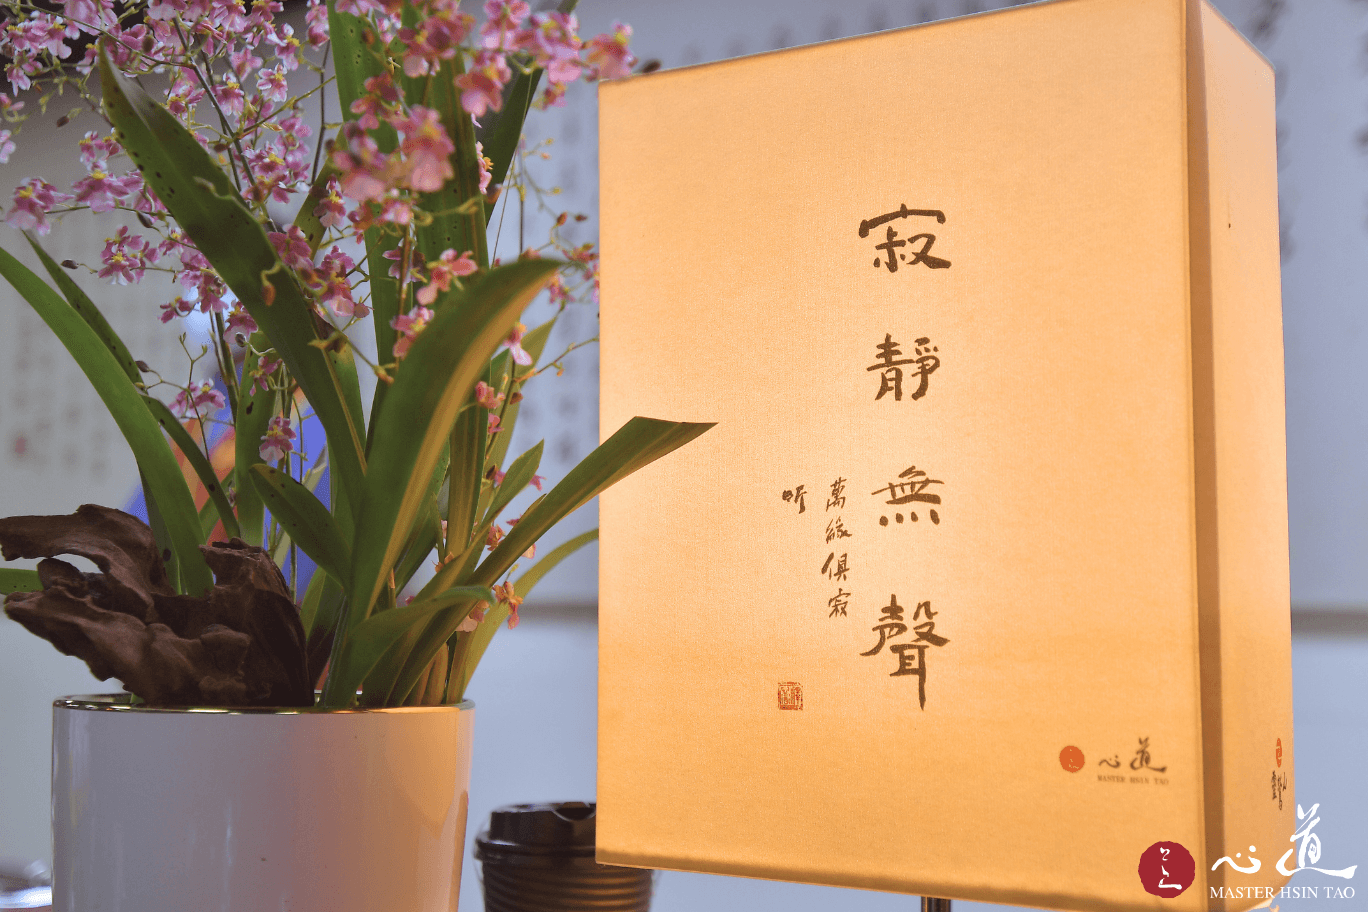 寂靜無聲
萬緣俱寂
聽
心道
MASTER HSIN TAO
心道
MASTER HSIN TAO